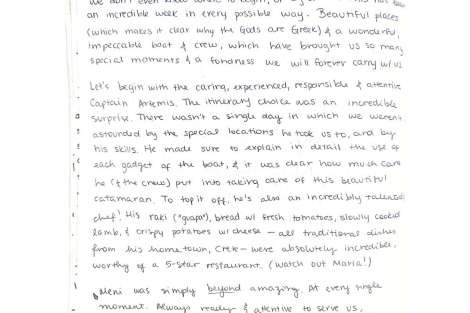 an incredible week in every possible way. Beautiful places
(which makes it clear why the Gods are Greek) & a wonderful,
impeccable boat & crew, which have brought us so many
special moments & a fondness we will forever carry w/ us.
Let's begin with the caring, experienced, responsible & attentive
Captain Artemis. The itinerary choice was an incredible
surprise. There wasn't a single day in which we weren't
astounded by the special locations he took us to, and by
his skills. He made sure to explain in detail the use of
each gadget of the boat, & it was clear how much care
he (& the crew) put into taking care of this beautiful
catamaran. To top it off, he's also an incredibly talented
chef! His raki ("grapa"), bread w/ fresh tomatoes, slowly cooked
lamb, & crispy potatoes w/ cheese — all traditional dishes
from his hometown, Crete — were absolutely incredible,
worthy of a 5-star restaurant. (Watch out Maria!)
Meni was simply beyond amazing. At every single
moment. Always ready & attentive to serve us,